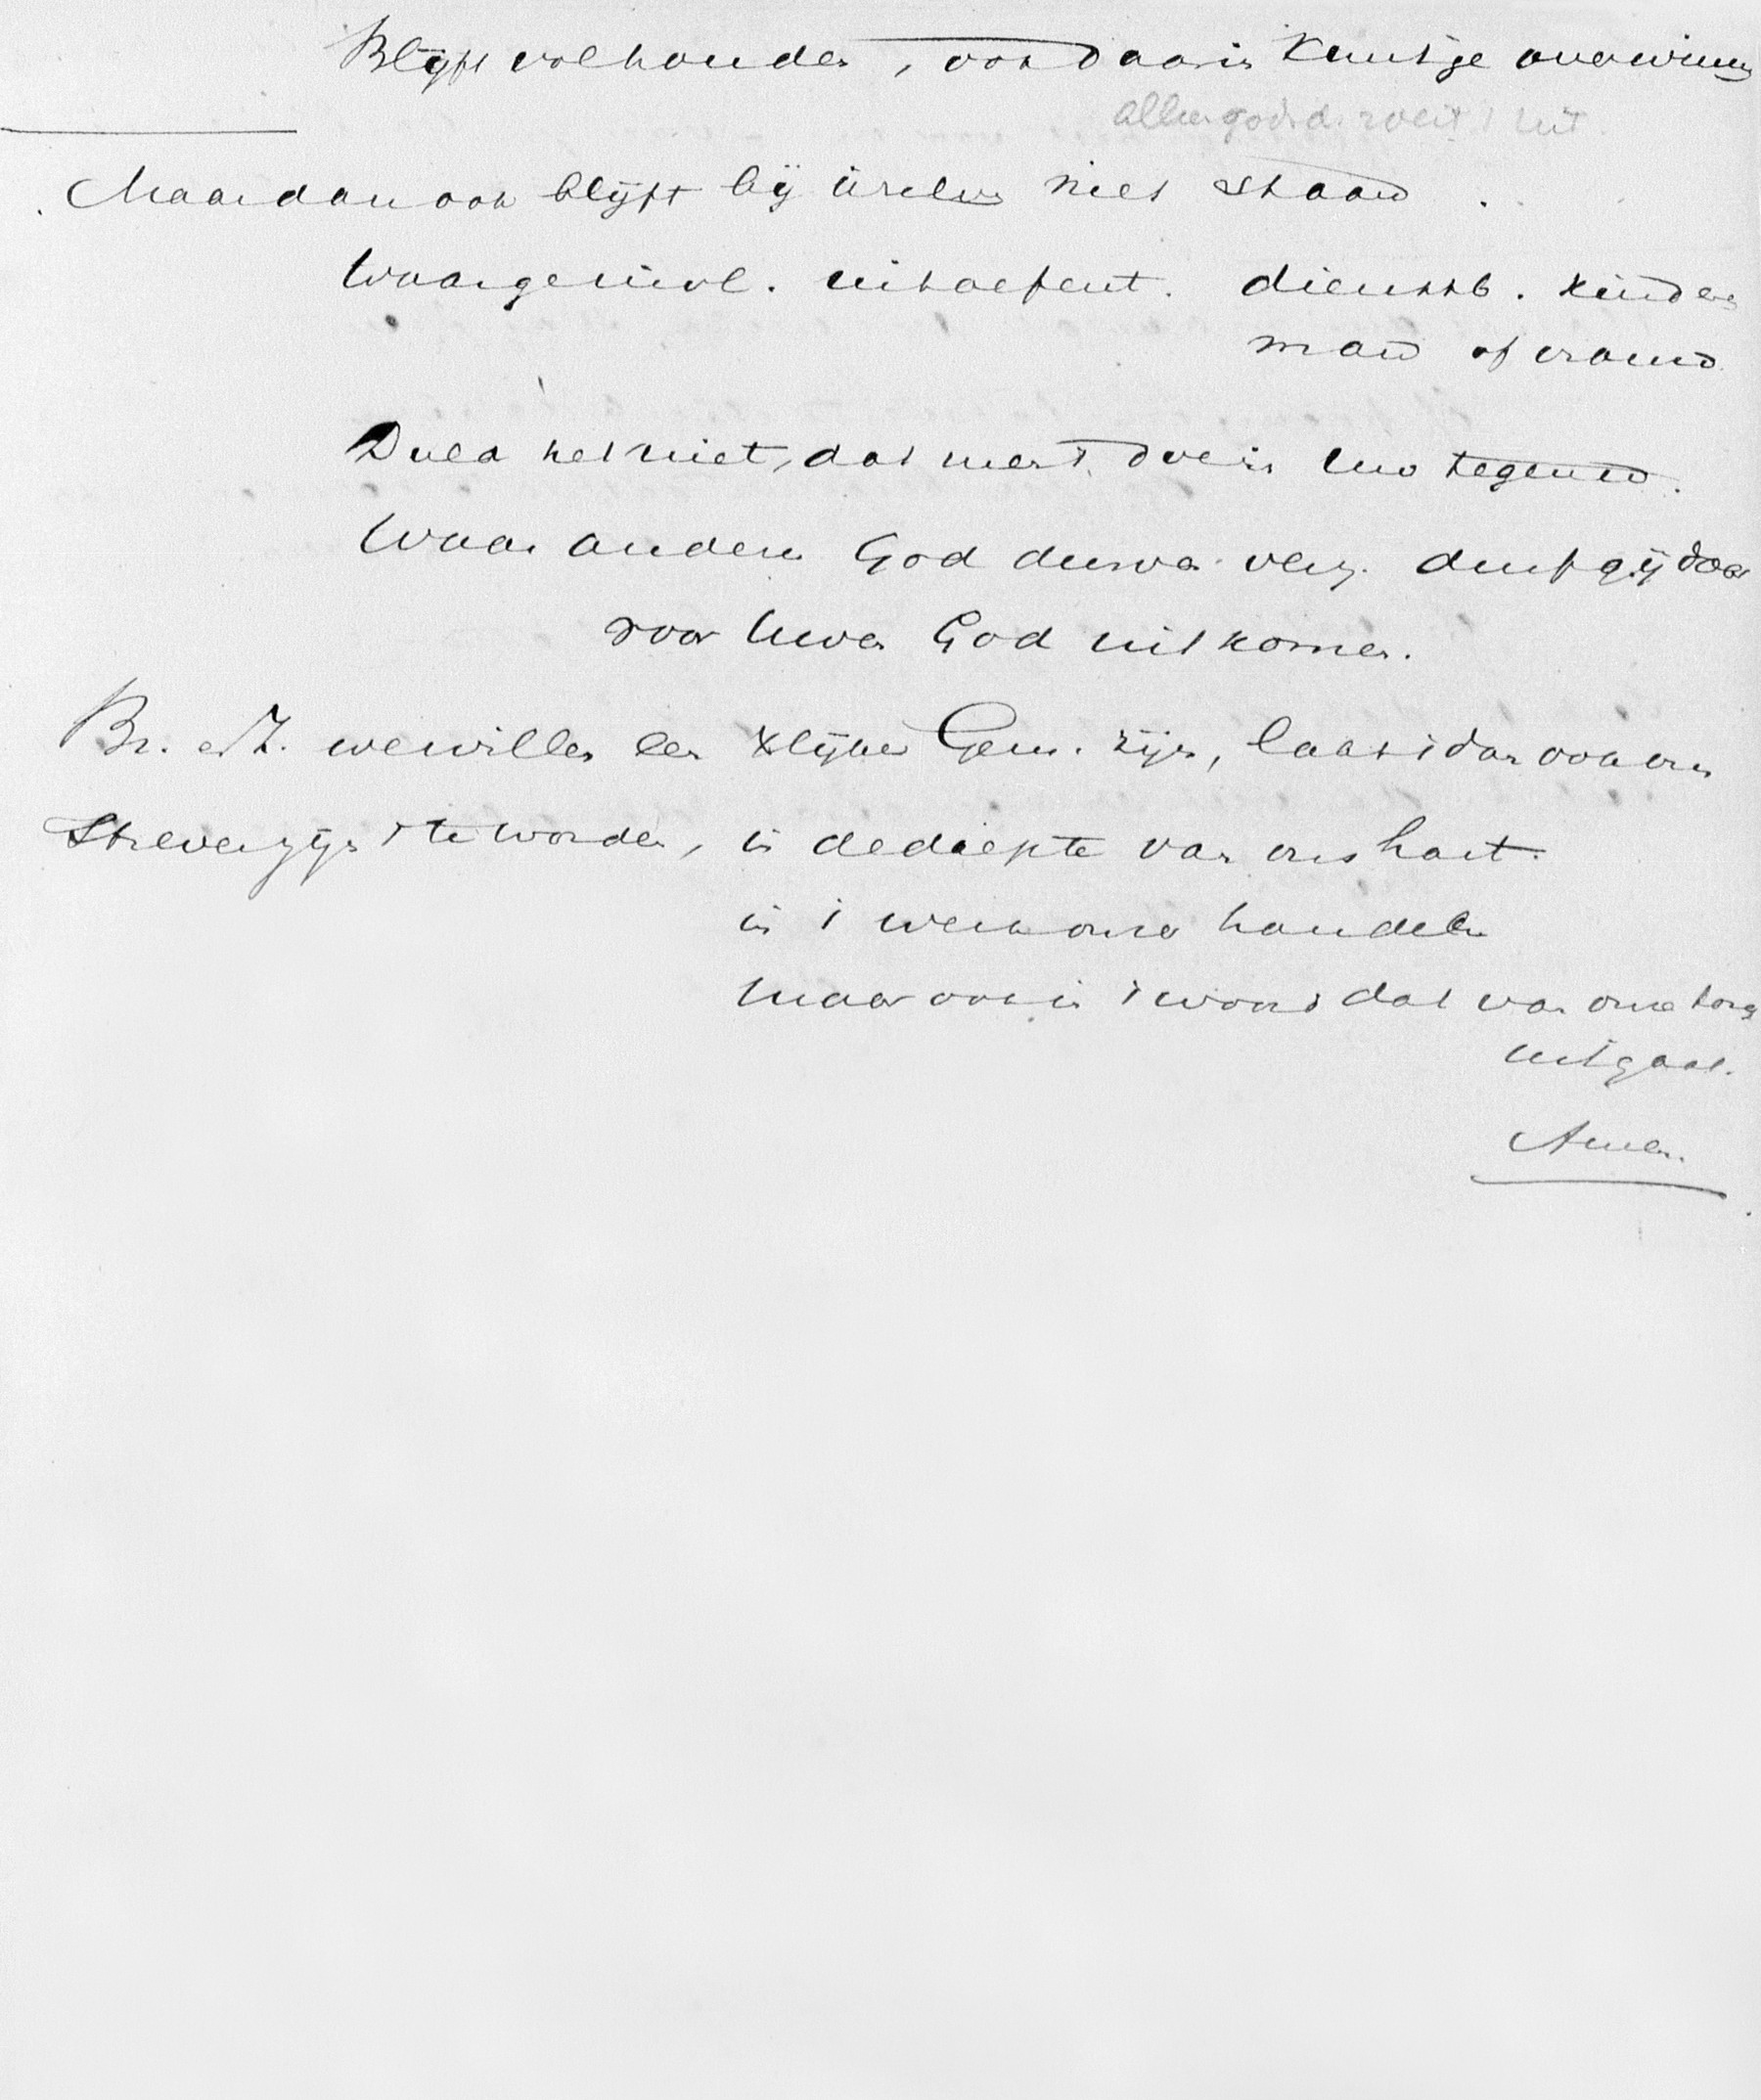 Blijft volhouden, ook daarin kunt ge overwinnen
alleen godsd.
Maar dan ook blijft bij Uzelven niet staan.
Waar ge invl. uitoefent. dienstb. kinderen
man of vrouw
Duld het niet, dat men 't doe in Uw tegenw.
Waar anderen God durven durft gij daar
voor Uwen God uitkomen.
Br. en Z. we willen een Xlijke Gem. zijn, laat 't dan ook ons
streven zijn 't te worden, in de diepte van ons hart.
in 't werk onzer handen
Maar ook in 't woord dat van onze tong
uitgaat.
Amen.